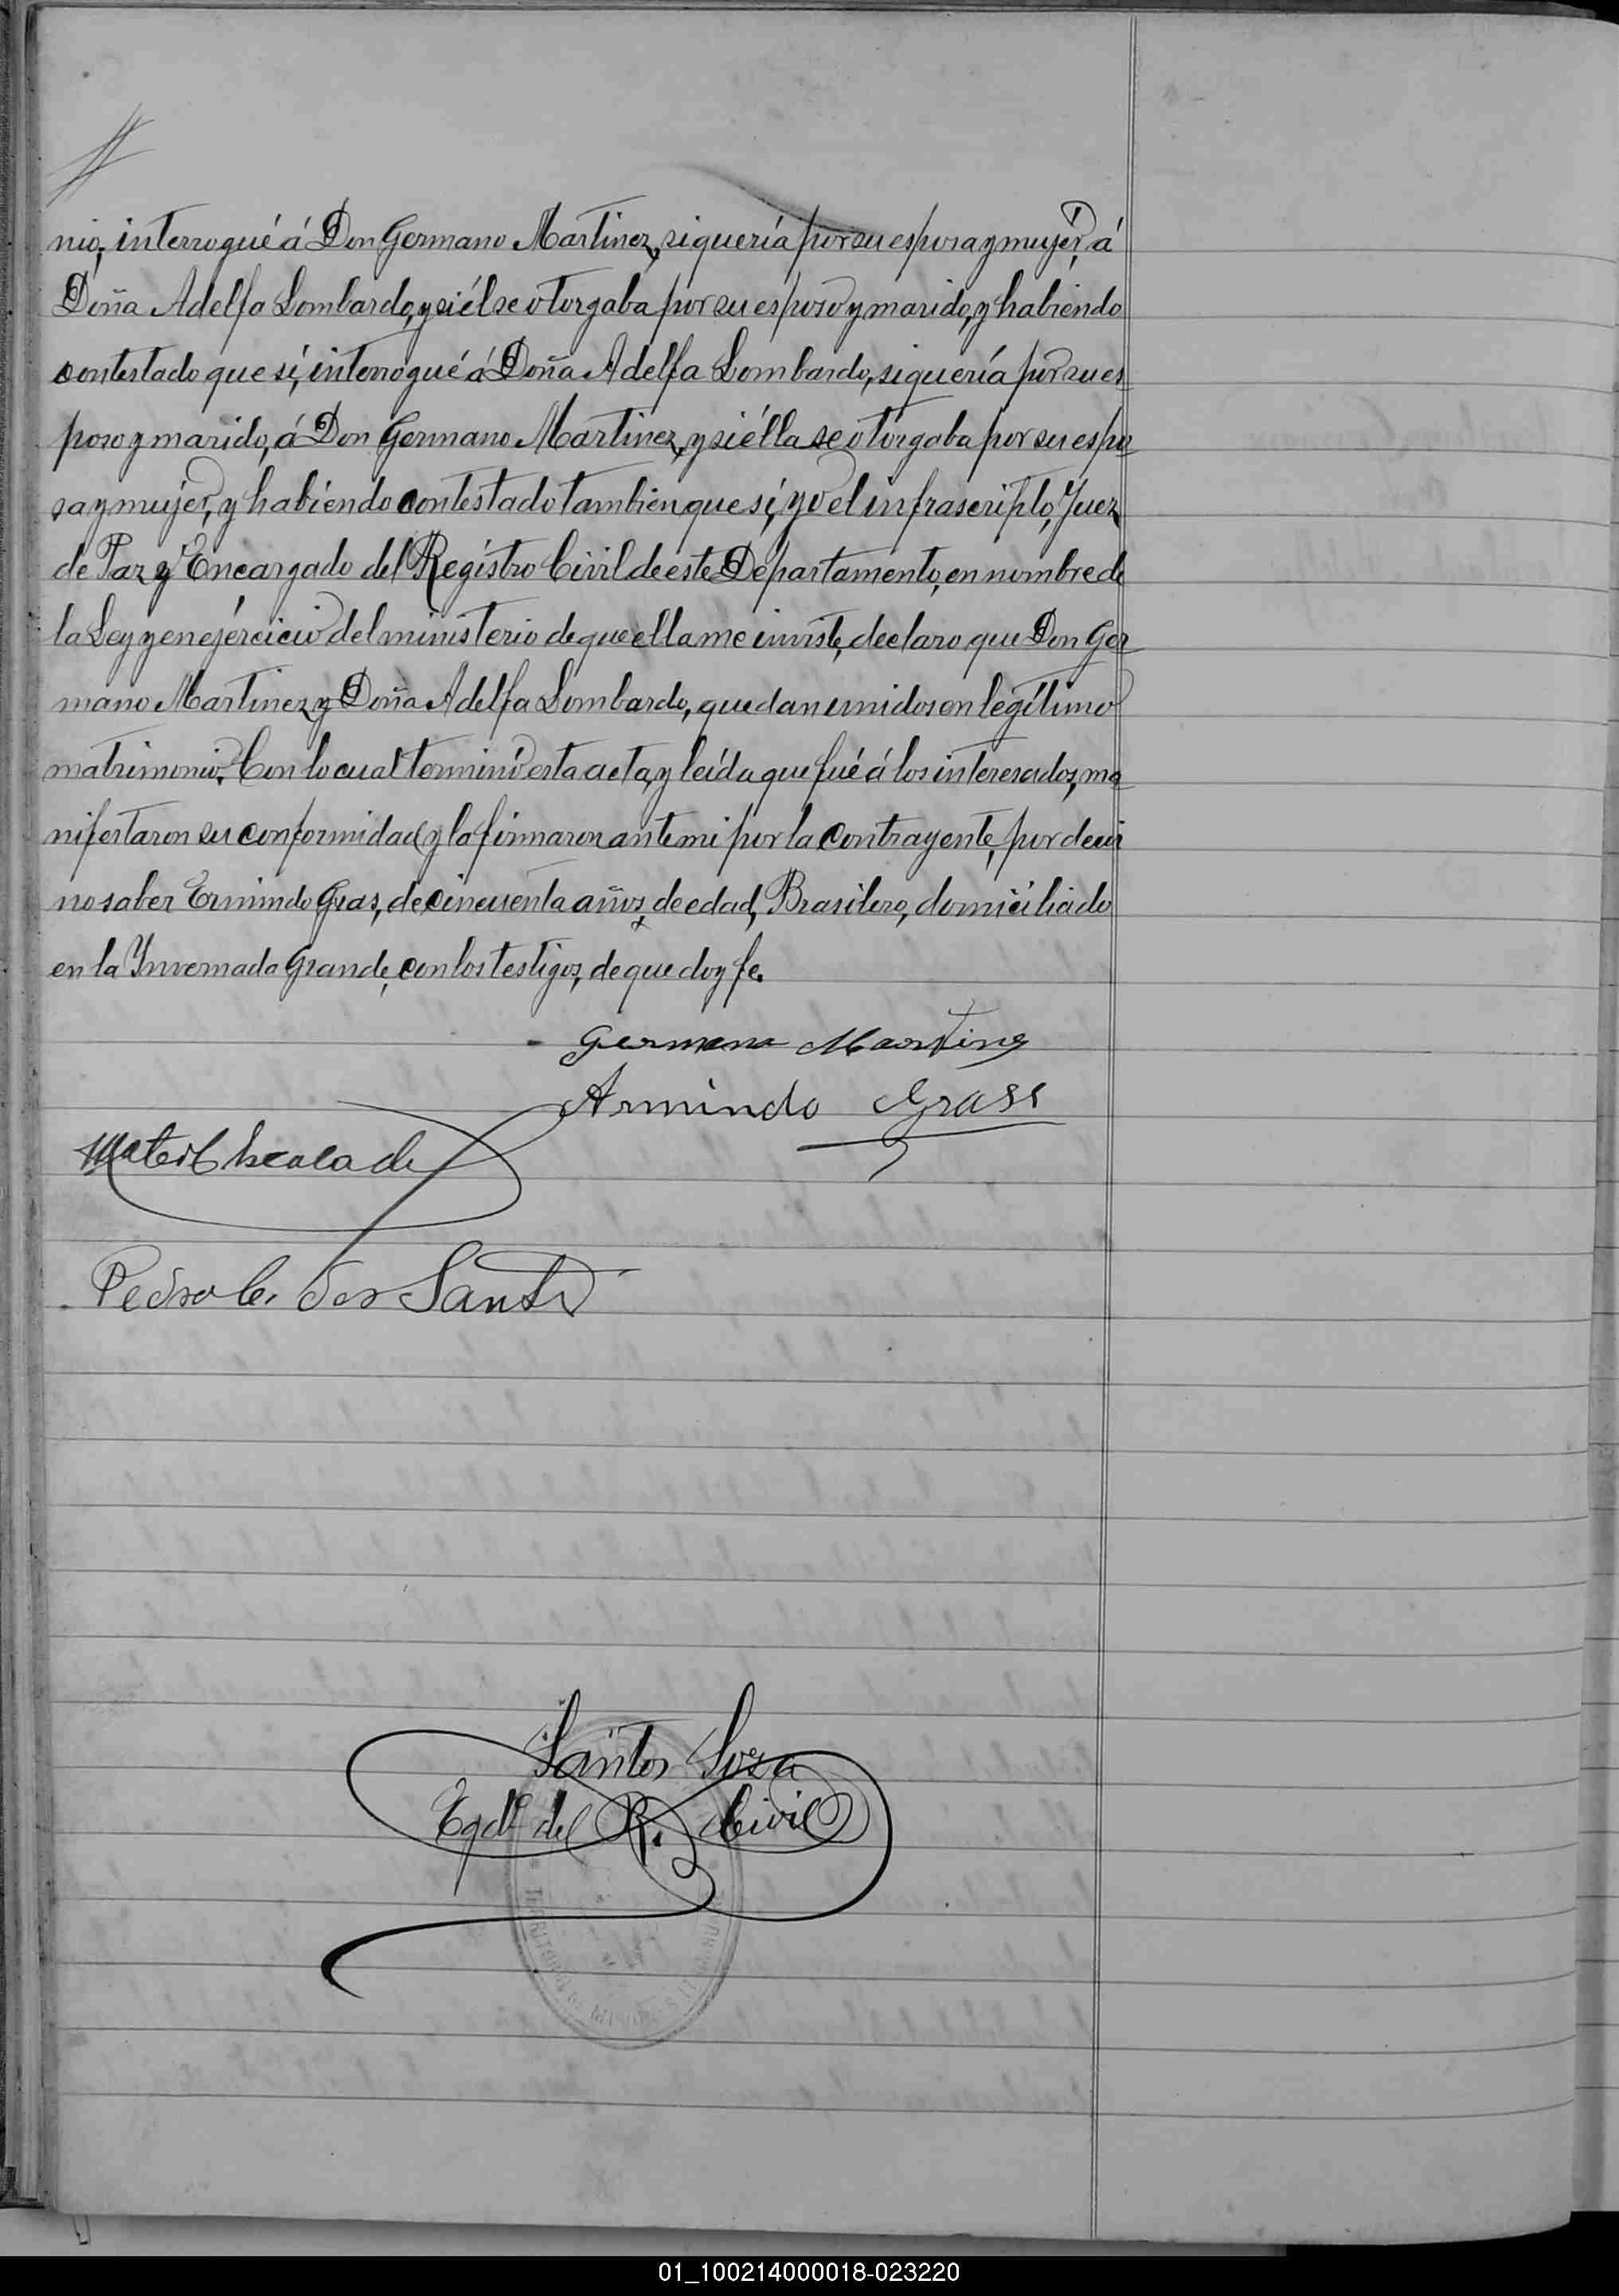 nio, interrogué á Don Germano Martinez, si quería por su esposa y mujer, á
Doña Adelfa Lombardo, y si él se otorgaba por su esposo y marido, y habiendo
contestado que sí, interrogué á Doña Adelfa Lombardo, si quería por su es
poso y marido, á Don Germano Martinez, y si élla se otorgaba por su espo
sa y mujer, y habiendo contestado tambien que sí, yo el infrascripto, Juez
de Paz y Encargado del Registro Civil de este Departamento, en nombre de
la Ley y en ejércicio del ministerio de que ella me inviste, declaro que Don Ger
mano Martinez y Doña Adelfa Lombardo, quedan unidos en legítimo
matrimonio. Con lo cual terminó esta acta, y leída que fué á los interesados, ma
nifestaron su conformidad y la firmaron ante mi por la contrayente, por decir
no saber Ermindo Gras, de cincuenta años, de edad, Brasilero, domiciliado
en la Invernada Grande, con los testigos, de que doy fe.
Germano Martinez
Armindo Grass
Mateo Escalade
Pedro C. dos Santos
Santos Soza
Egdo del R. Civil
TERRITORIO DE MISIONES
01_100214000018-023220